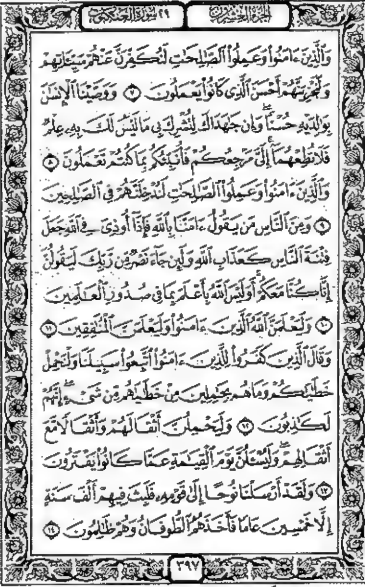 الجزء العشرون ٢٩ سورة العنكبوت
وَالَّذِينَ ءَامَنُوا وَعَمِلُوا الصَّٰلِحَٰتِ لَنُكَفِّرَنَّ عَنْهُمْ سَيِّـَٔاتِهِمْ
وَلَنَجْزِيَنَّهُمْ أَحْسَنَ الَّذِي كَانُوا يَعْمَلُونَ ٧ وَوَصَّيْنَا الْإِنسَٰنَ
بِوَٰلِدَيْهِ حُسْنًا ۖ وَإِن جَٰهَدَاكَ لِتُشْرِكَ بِي مَا لَيْسَ لَكَ بِهِ عِلْمٌ
فَلَا تُطِعْهُمَا ۚ إِلَيَّ مَرْجِعُكُمْ فَأُنَبِّئُكُم بِمَا كُنتُمْ تَعْمَلُونَ ٨
وَالَّذِينَ ءَامَنُوا وَعَمِلُوا الصَّٰلِحَٰتِ لَنُدْخِلَنَّهُمْ فِي الصَّٰلِحِينَ
٩ وَمِنَ النَّاسِ مَن يَقُولُ ءَامَنَّا بِاللَّهِ فَإِذَا أُوذِيَ فِي اللَّهِ جَعَلَ
فِتْنَةَ النَّاسِ كَعَذَابِ اللَّهِ وَلَئِن جَاءَ نَصْرٌ مِّن رَّبِّكَ لَيَقُولُنَّ
إِنَّا كُنَّا مَعَكُمْ ۚ أَوَلَيْسَ اللَّهُ بِأَعْلَمَ بِمَا فِي صُدُورِ الْعَٰلَمِينَ
١٠ وَلَيَعْلَمَنَّ اللَّهُ الَّذِينَ ءَامَنُوا وَلَيَعْلَمَنَّ الْمُنَٰفِقِينَ ١١
وَقَالَ الَّذِينَ كَفَرُوا لِلَّذِينَ ءَامَنُوا اتَّبِعُوا سَبِيلَنَا وَلْنَحْمِلْ
خَطَٰيَٰكُمْ وَمَا هُم بِحَٰمِلِينَ مِنْ خَطَٰيَٰهُم مِّن شَيْءٍ ۖ إِنَّهُمْ
لَكَٰذِبُونَ ١٢ وَلَيَحْمِلُنَّ أَثْقَالَهُمْ وَأَثْقَالًا مَّعَ
أَثْقَالِهِمْ ۖ وَلَيُسْـَٔلُنَّ يَوْمَ الْقِيَٰمَةِ عَمَّا كَانُوا يَفْتَرُونَ
١٣ وَلَقَدْ أَرْسَلْنَا نُوحًا إِلَىٰ قَوْمِهِ فَلَبِثَ فِيهِمْ أَلْفَ سَنَةٍ
إِلَّا خَمْسِينَ عَامًا فَأَخَذَهُمُ الطُّوفَانُ وَهُمْ ظَٰلِمُونَ ١٤
٣٩٧